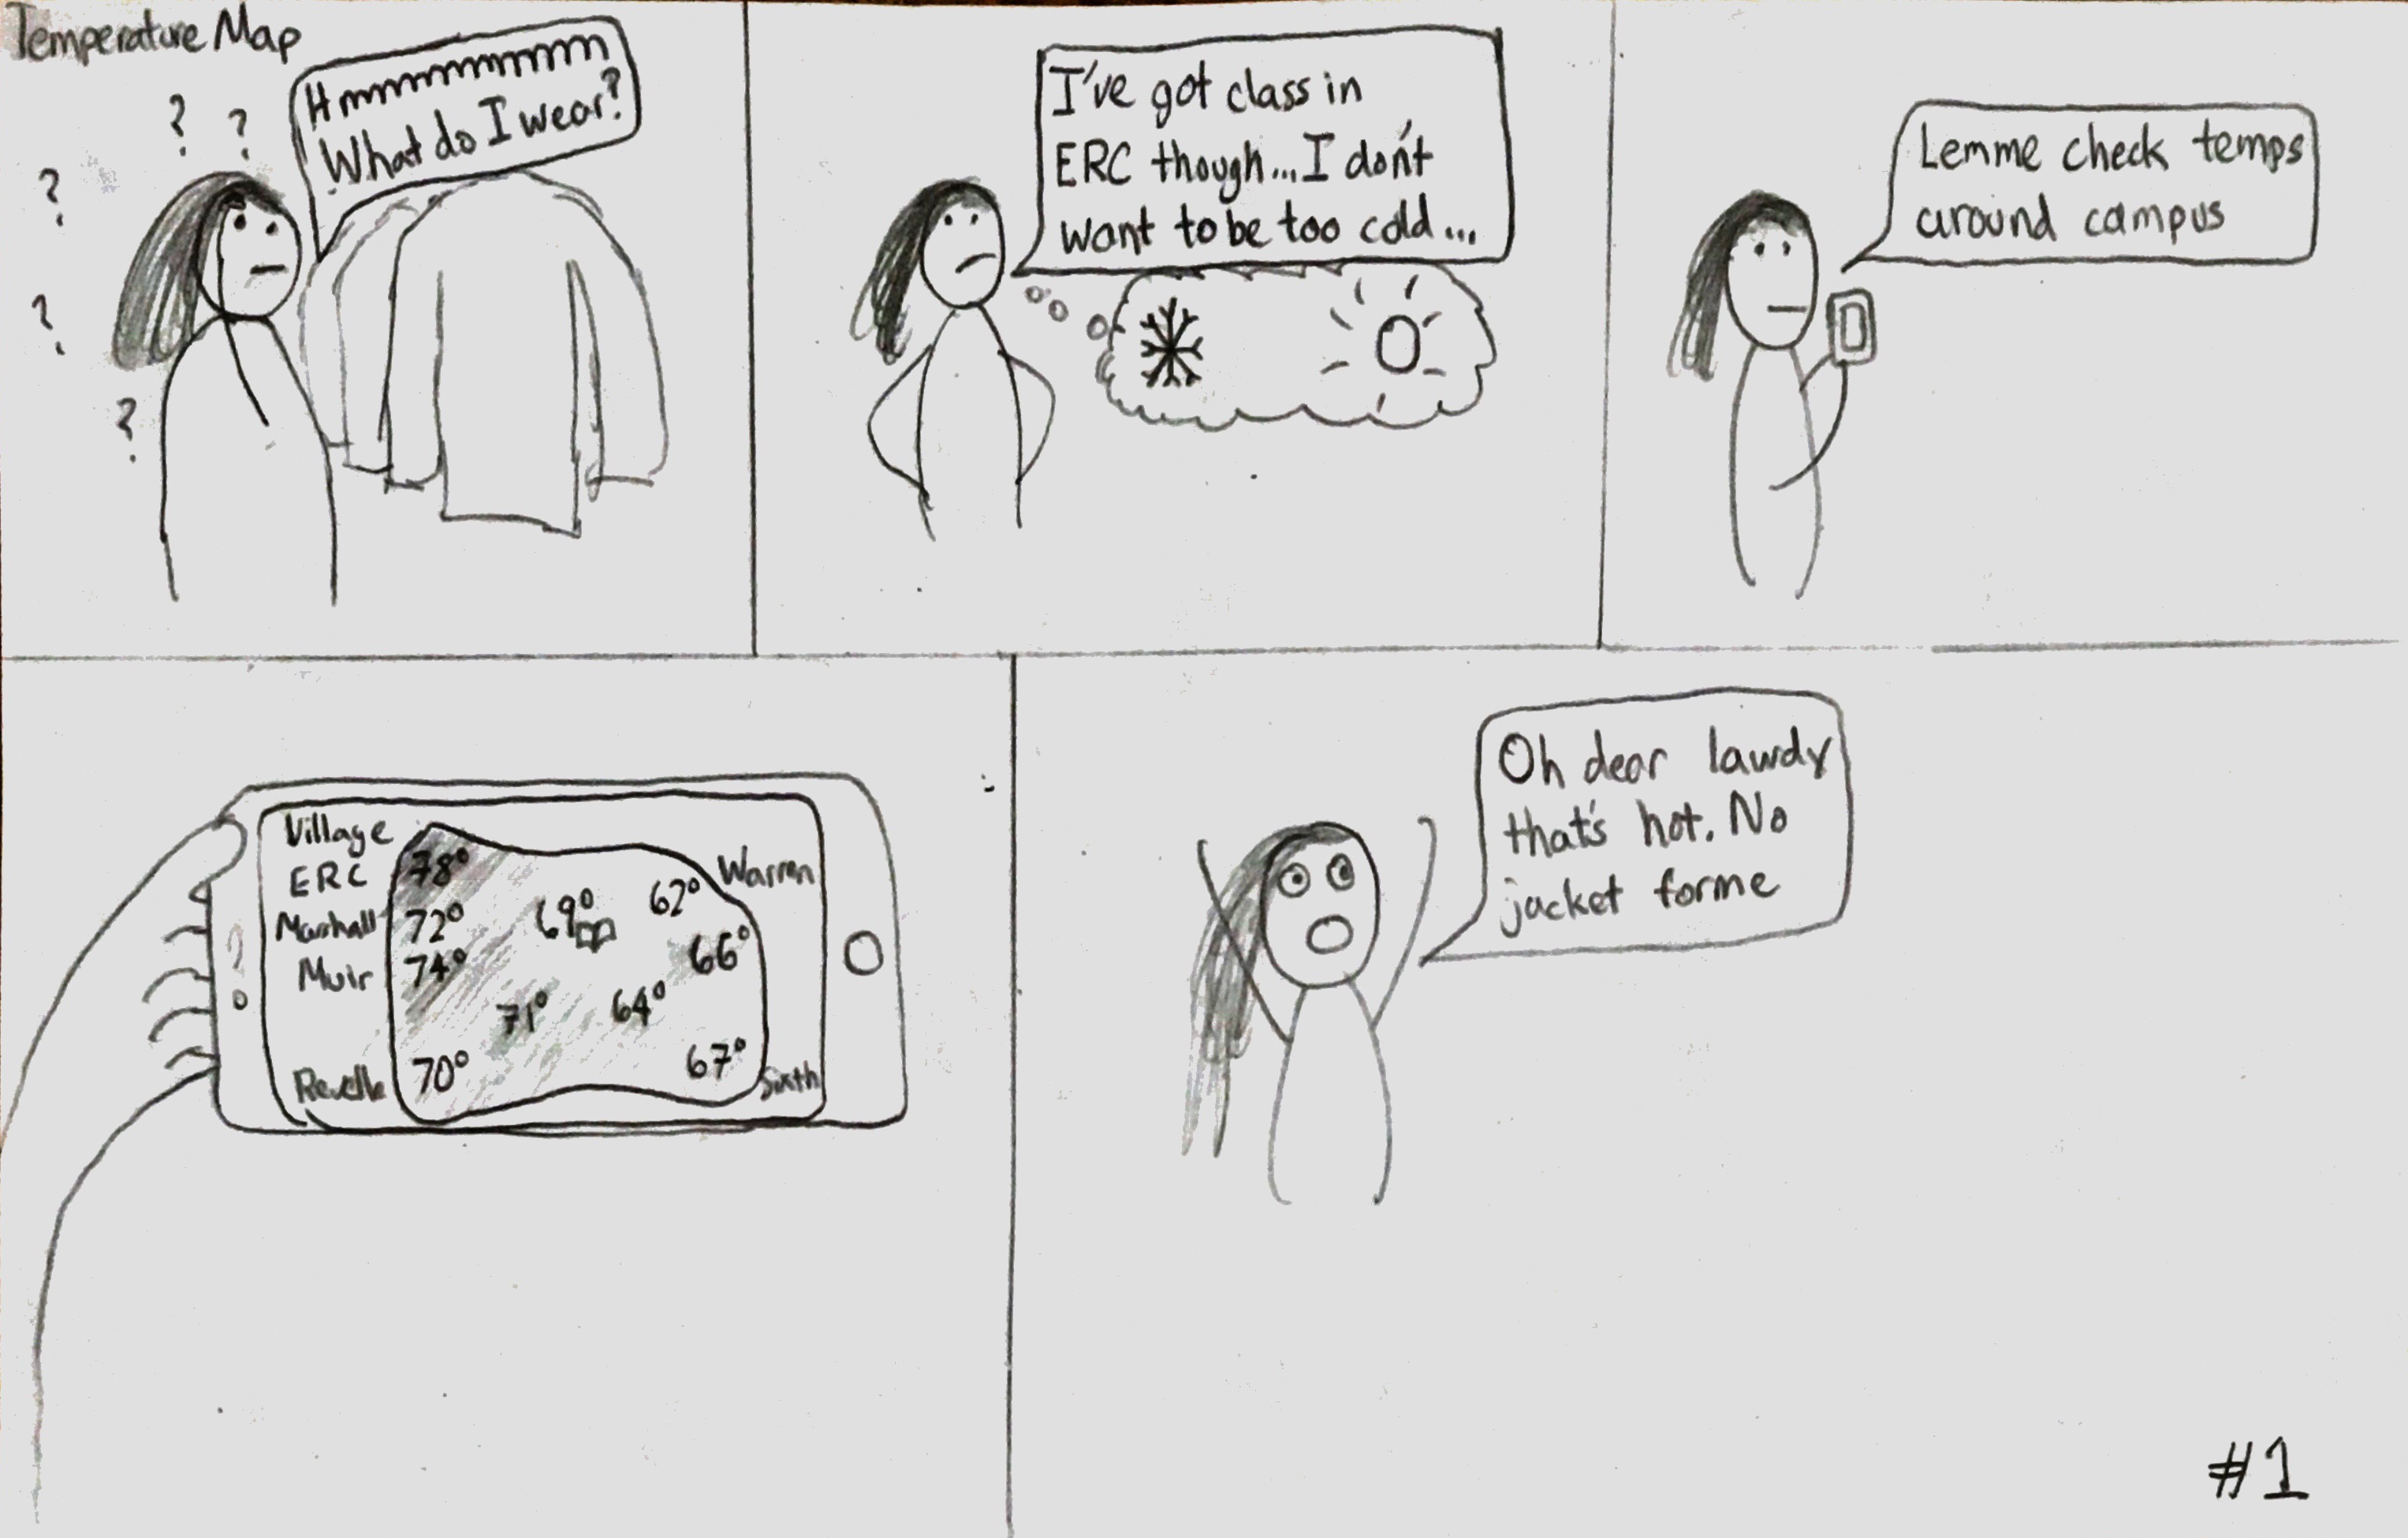 Temperature Map
Hmmmmmmmmm
What do I wear?
? ? ? ? ?
I've got class in
ERC though...I don't
want to be too cold...
Lemme check temps
around campus
Village
ERC 78°
Marshall 72° 69° 62° Warren
Muir 74° 66°
71° 64°
Revelle 70° 67° Sixth
Oh dear lawdy
that's hot. No
jacket for me
#1